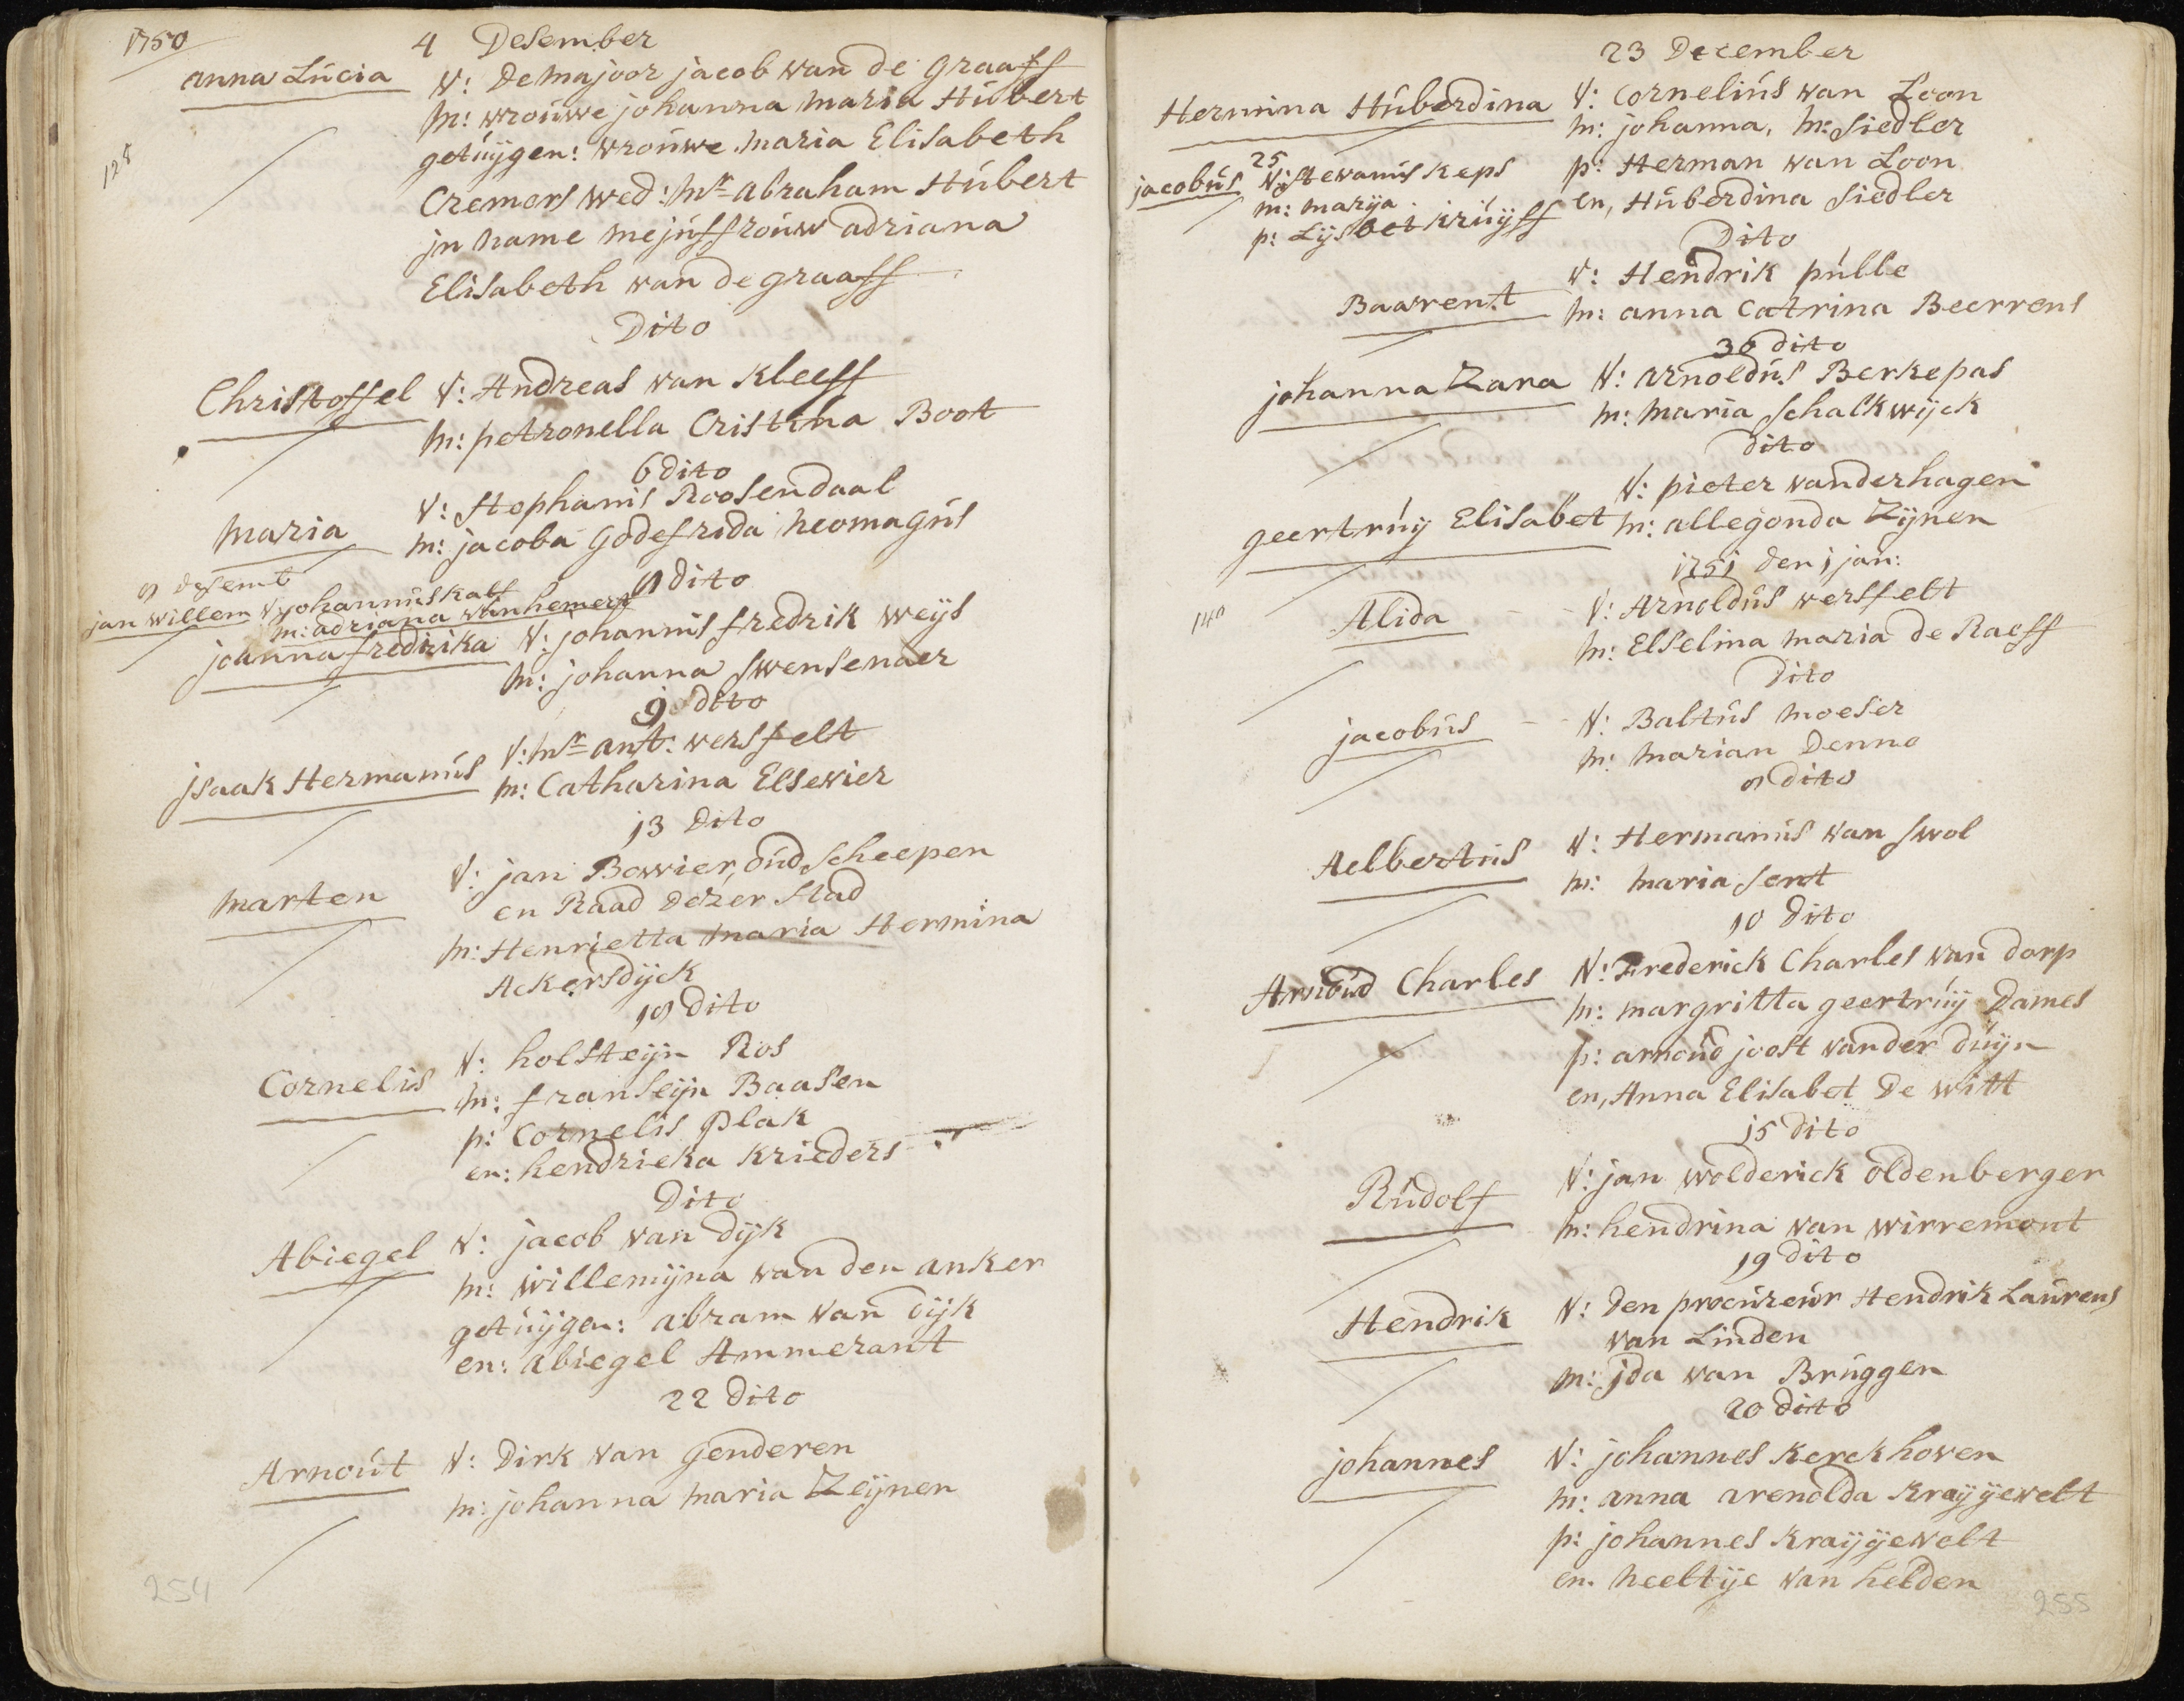 1750
4 Desember
anna Lúcia V: De majoor jacob van de graaff
m: vroúwe johanna maria Húbert
getúÿgen: vroúwe maria Elisabeth
Cremers wed: mr abraham Húbert
jn name mejúffroúw adriana
Elisabeth van de graaff
128
Dito
Christoffel V: Andreas van Kleeff
m: petronella Cristina Boot
6 dito
maria V: Stephanús Roosendaal
m: jacoba godefrida neomagús
9 desemb
jan willem V johannús kalf
m: adriana van hemert
9 dito
joanna fredirika V: johannis fredrik weÿs
m: johanna swensenaer
9 dito
jsaak Hermanús V: mr ant: versfelt
m: Catharina Elsevier
13 dito
marten V: jan Bowier, oúd scheepen
en Raad dezer stad
m: Henrietta maria Hermina
Ackersdÿck
19 dito
Cornelis V: holsteÿn Ros
m: franseÿn Baasen
p: Cornelis Plak
en: hendrieka Krieders
Dito
Abiegel V: jacob van dÿk
m: willemÿna van den anker
getúÿgen: abram van dÿk
en: abiegel Ammerant
22 dito
Arnoút V: Dirk van genderen
m: johanna maria Zeÿnen
254
23 December
Hermina Húberdina V: Corneliús van Loon
m: johanna, m: Siedler
p: Herman van Loon
en, Húberdina Siedler
25
jacobús V: stevanús keps
m: marÿa
p: Lÿsbet krúÿff
Dito
Baarent V: Hendrik púlle
m: anna Catrina Beerrens
36 dito
johanna Zara V: arnoldús Berkepas
m: maria schalkwÿck
dito
geertrúÿ Elisabet V: pieter vanderhagen
m: allegonda Zÿnen
1751 den 1 jan:
140
Alida V: Arnoldús versfelt
m: Elselina maria de Raeff
Dito
jacobús V: Baltús moeser
m: marian Denne
9 dito
Aelbertús V: Hermanús van swol
m: maria sent
10 dito
Arnoúd Charles V: Frederick Charles van dorp
m: margritta geertrúÿ Dames
p: arnoúd joost vander dúÿn
en, Anna Elisabet De witt
15 dito
Rúdolf V: jan wolderick oldenberger
m: hendrina van wirremont
19 dito
Hendrik V: Den procúreúr Hendrik Laúrens
van Linden
m: jda van Brúggen
20 dito
johannes V: johannes Kerckhoven
m: anna arenolda Kraÿÿevelt
p: johannes Kraÿÿevelt
en. neeltÿe van helden
255